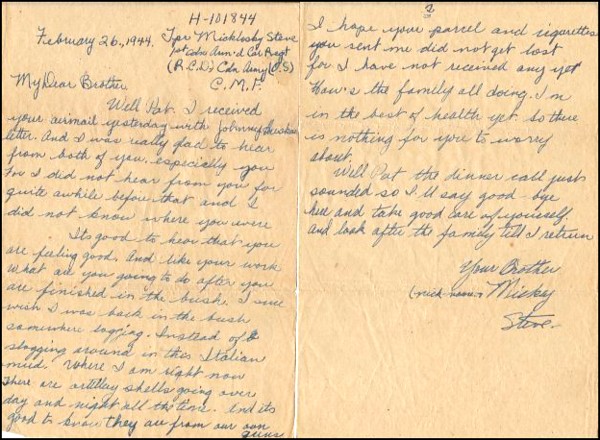 H-101844
February 26, 1944. Tpr Micklosky Steve
1st Cdn Arm'd Car Regt
(R.C.D) Cdn Army (O.S)
C.M.F.
My Dear Brother
Well Pat. I received
your airmail yesterday with Johnney
letter. And I was really glad to hear
from both of you. especially you
For I did not hear from you for
quite awhile before that and I
did not know where you were
Its good to hear that you
are feeling good. And like your work
What are you going to do after you
are finished in the bush. I sure
wish I was back in the bush
somewhere logging. Instead of
slogging around in this Italian
mud. Where I am right now
There are artillery shells going over
day and night all the time. And its
good to know they are from our own
guns
2
I hope your parcel and cigarettes
you sent me did not get lost
for I have not received any yet
How's the family all doing. I'm
in the best of health yet. So there
is nothing for you to worry
about.
Well Pat the dinner call just
sounded so I'll say good-bye
here and take good care of yourself.
And look after the family till I return
Your Brother
(nick-name) Mickey
Steve.